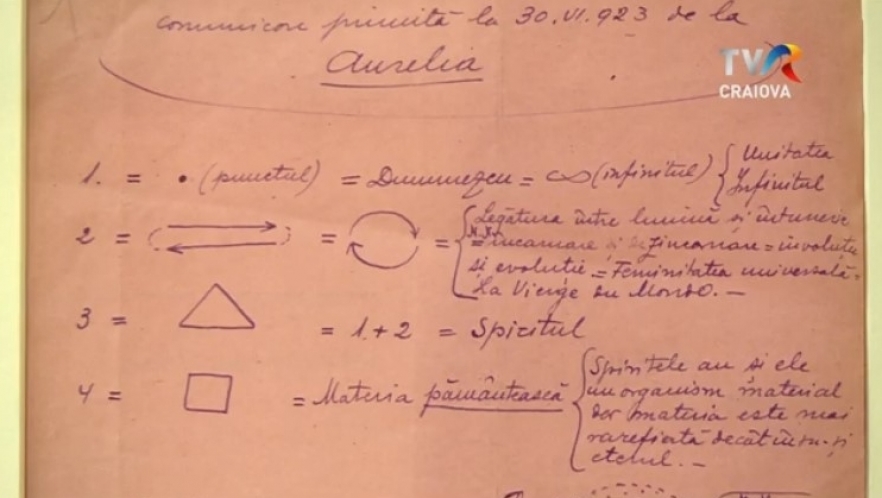 comunicare primită la 30.VI.923 de la
Aurelia
TVR
CRAIOVA
1. = • (punctul) = Dumnezeu = ∞ (infinitul) { Unitatea
Infinitul
2 = = = { Legătura între lumină și întuneric
= incarnare și = involuție
și evoluție = Feminitatea universală =
La Vierge du Mondo. —
3 = = 1 + 2 = Spiritul
4 = = Materia pământească { Spiritele au și ele
un organism material
dar materia este mai
rarefiată decât și
eterul. —